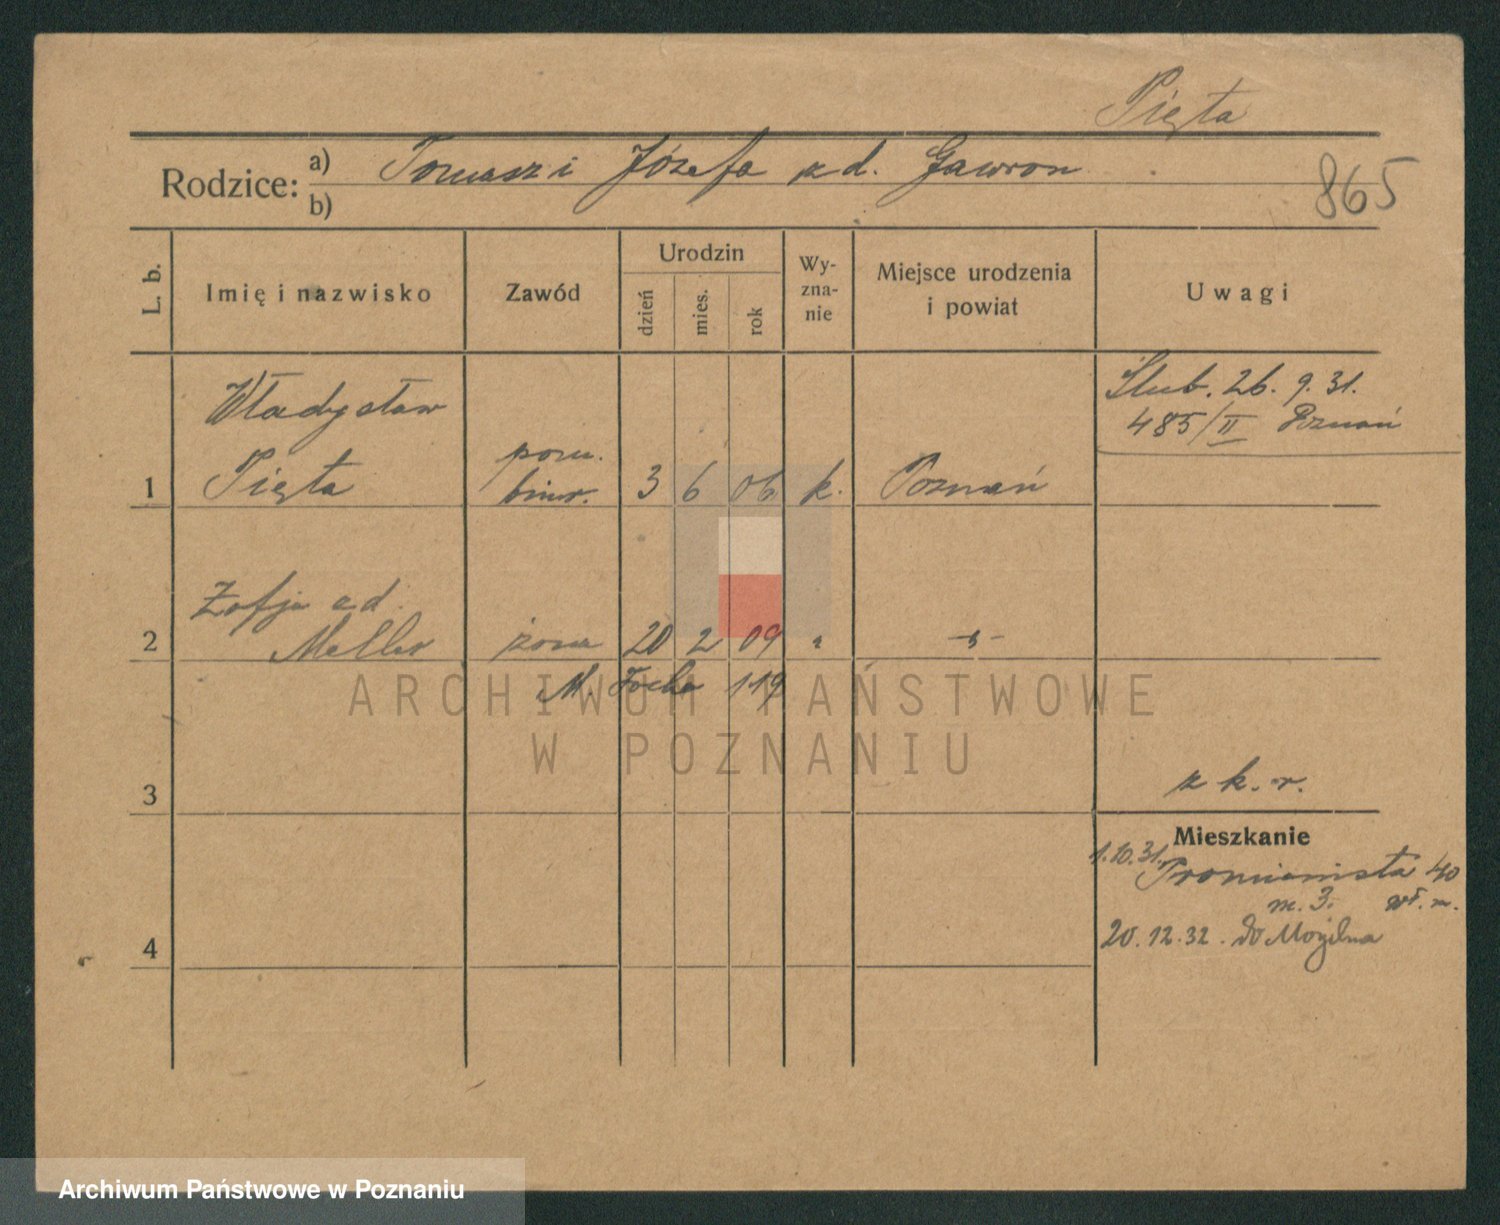 Pięta
Rodzice: a) Tomasz i Józefa zd. Gawron
b)
865
L. b.
Imię i nazwisko
Zawód
Urodzin
dzień
mies.
rok
Wy-
zna-
nie
Miejsce urodzenia
i powiat
Uwagi
Ślub. 26. 9. 31.
485/II Poznań
Władysław
1 Pięta
pom.
biur. 3 6 06 k. Poznań
Zofja zd.
2 Meller żona 20 2 09 " -"-
M. Focha 119
3
z k. r.
Mieszkanie
1.10.31. Promienista 40
m. 3. wł. m.
20.12.32. do Mogilna
4
ARCHIWUM PAŃSTWOWE
W POZNANIU
Archiwum Państwowe w Poznaniu